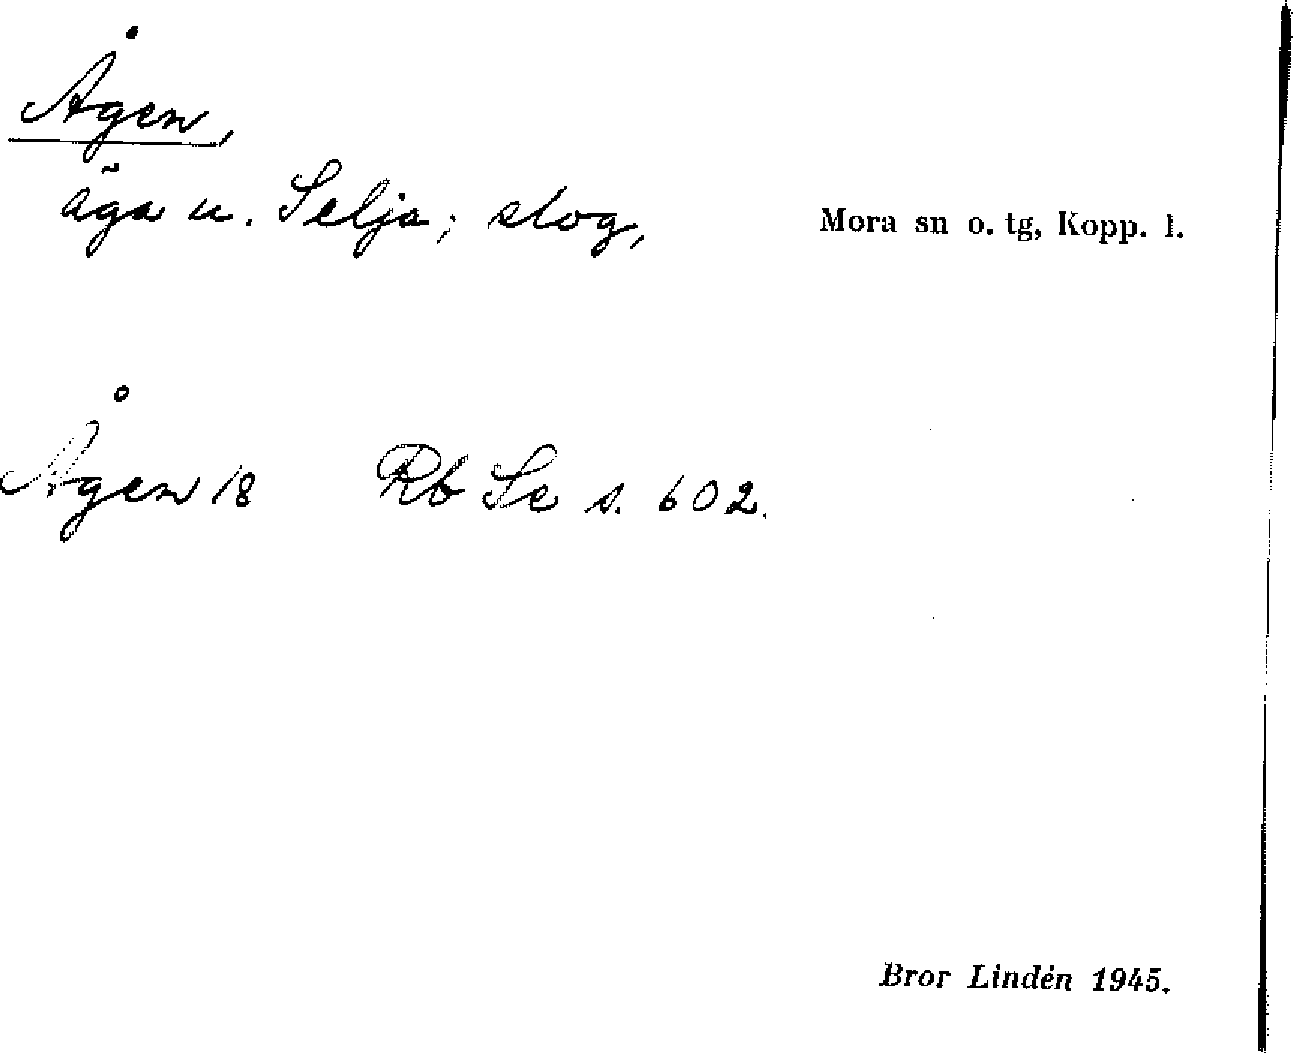 Ågen,
äga u. Selja; slog,
Mora sn o. tg, Kopp. l.
Ågen 18 Rb Se s. 602.
Bror Lindén 1945.